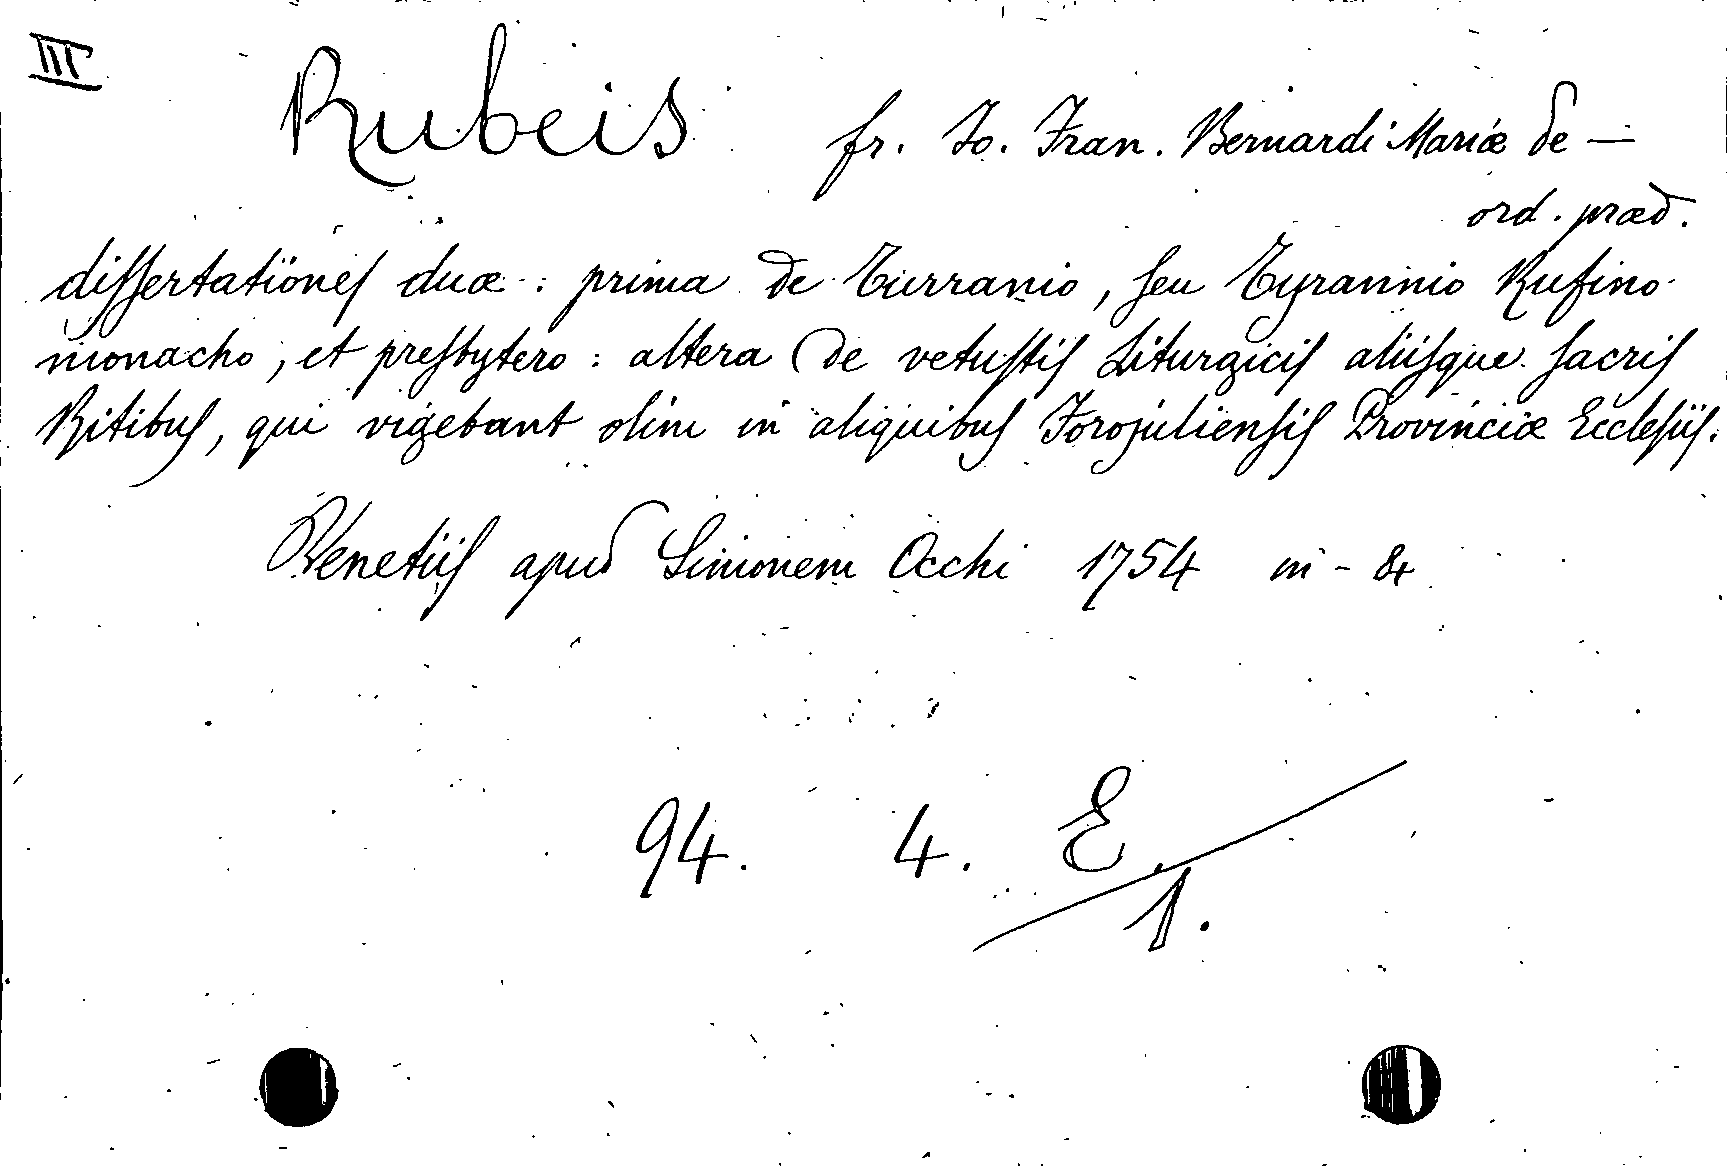 III
Rubeis fr. Jo. Fran. Bernardi Mariæ de —
ord. præd.
diſſertationeſ duæ : prima de Turranio, ſeu Tyrannio Rufino
monacho, et preſbytero : altera de vetuſtiſ Liturgiciſ aliiſque ſacriſ
Ritibuſ, qui vigebant olim in aliquibuſ Forojulienſiſ Provinciæ Eccleſiiſ.
Venetiiſ apud Simonem Occhi 1754 in - 4
94. 4. E
1.